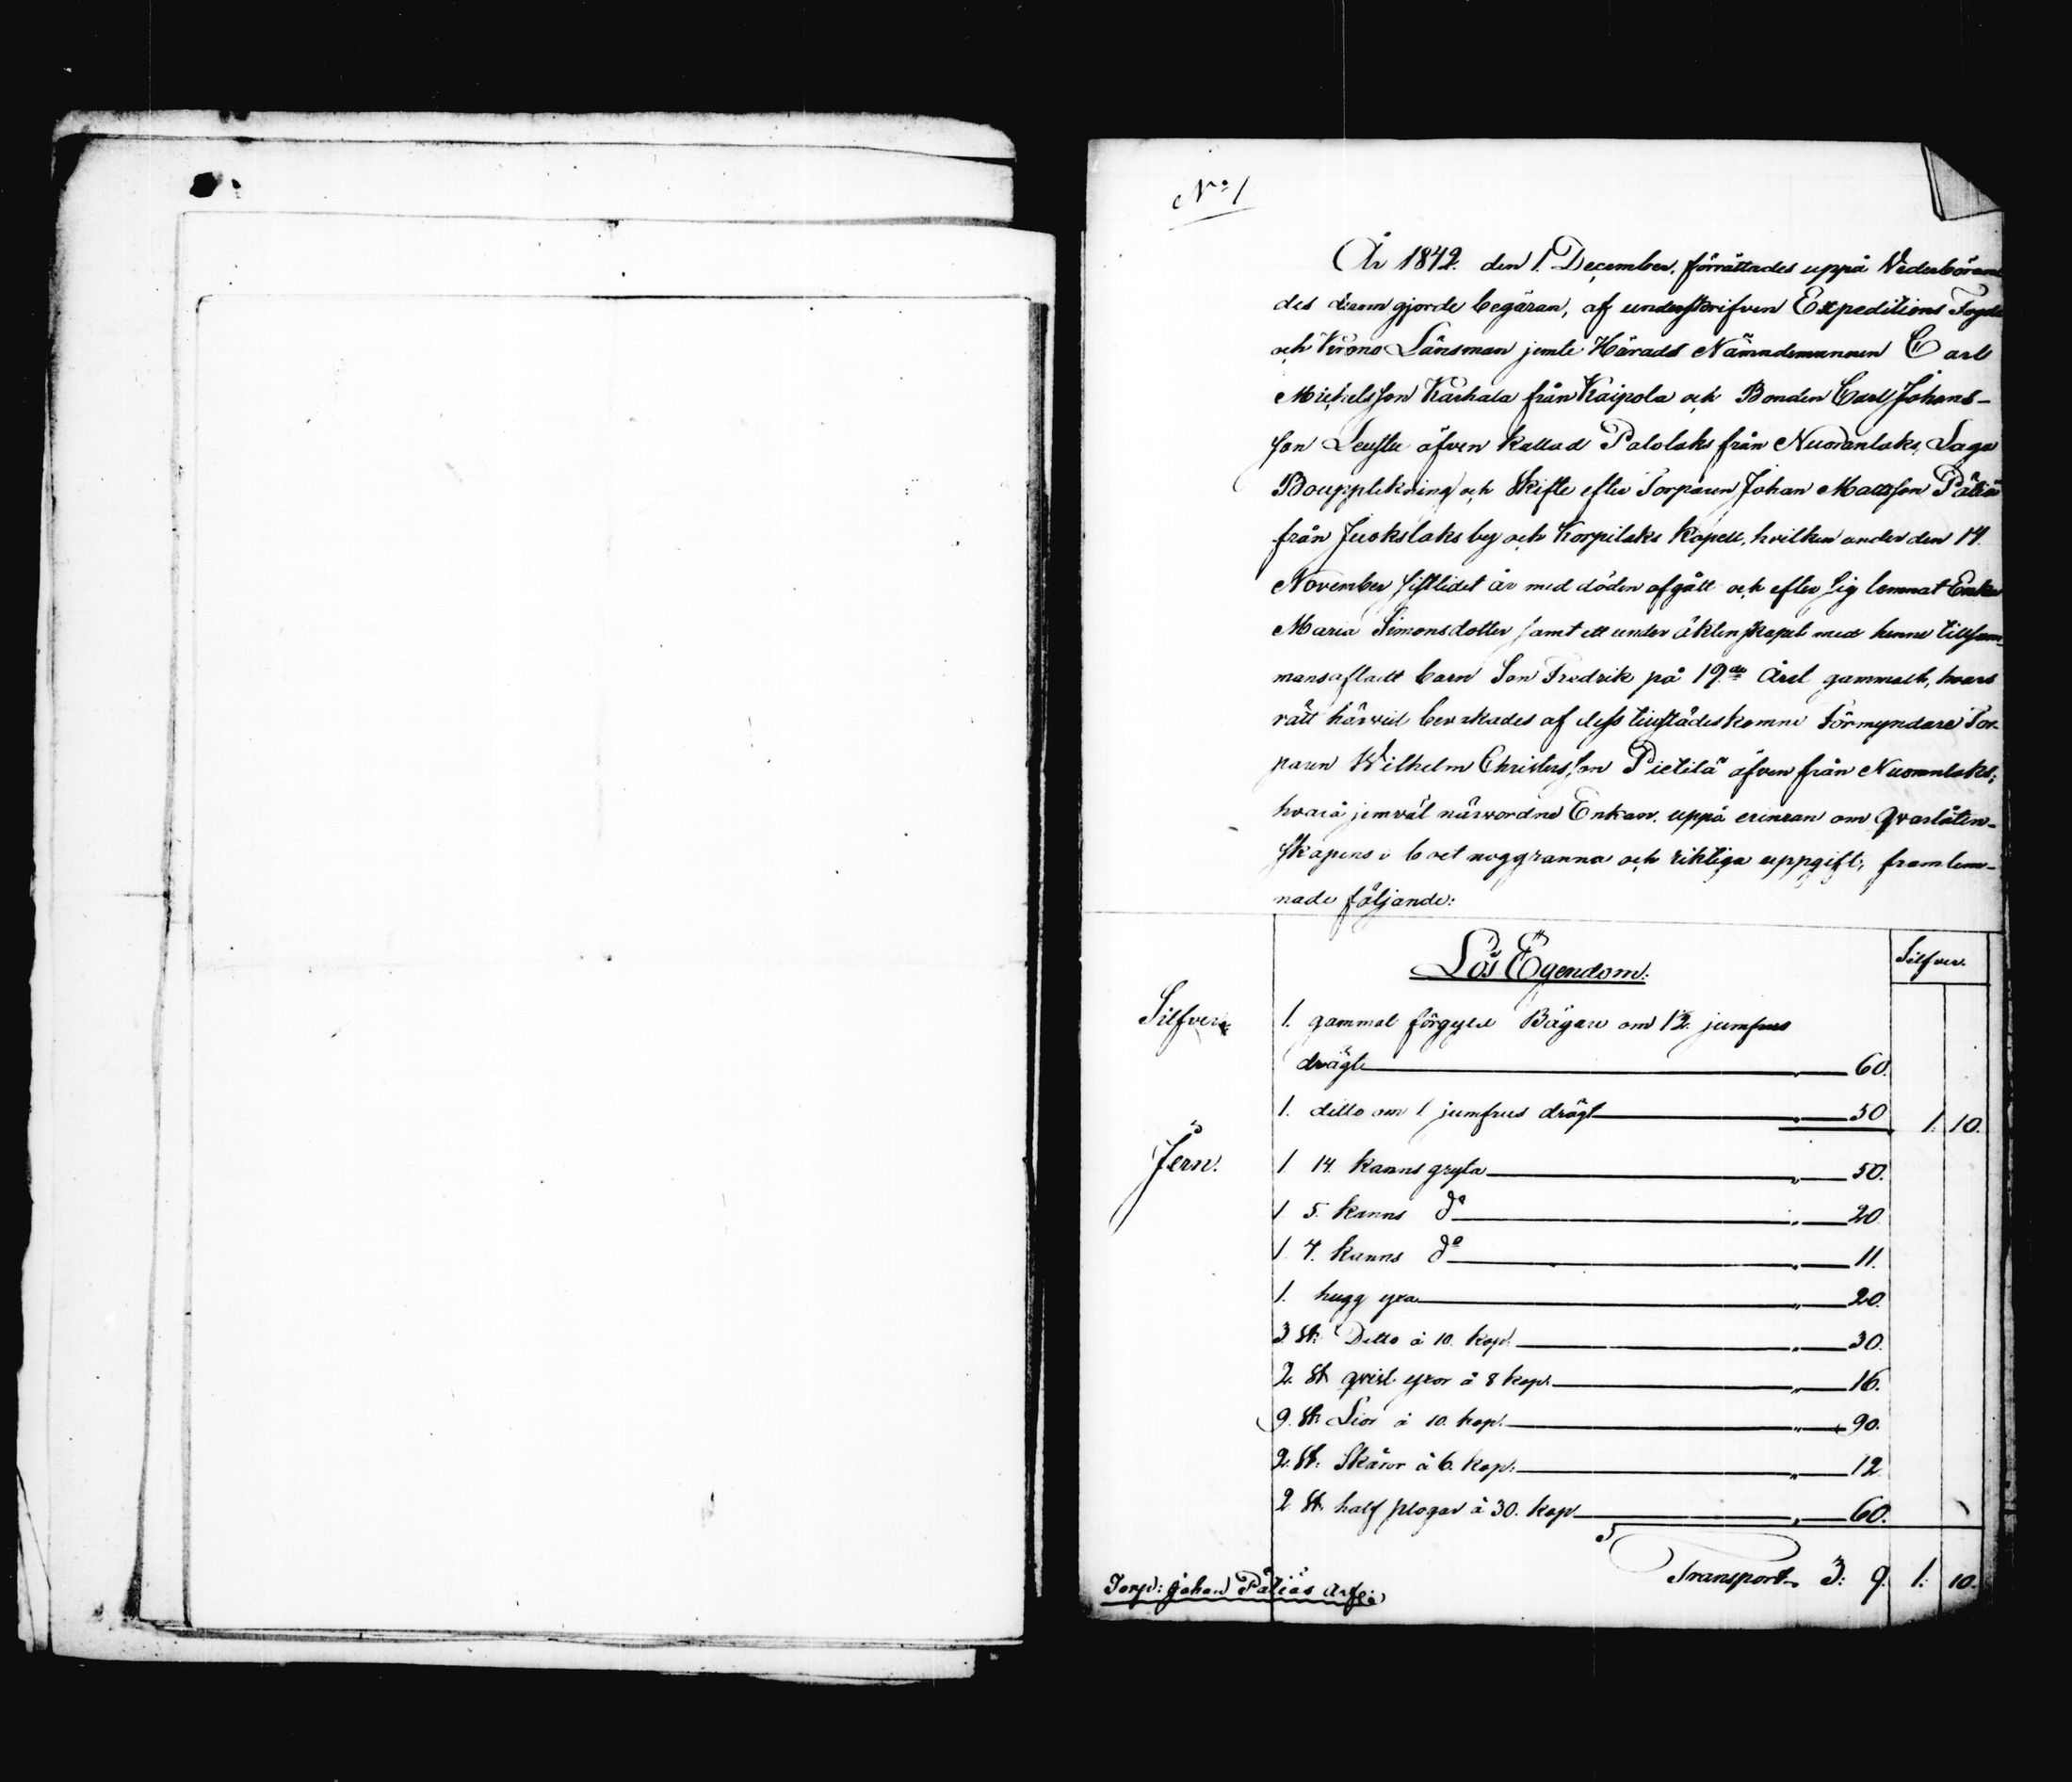 No 1
År 1842. den 1. December, förrättades uppå Wederböran
des derom gjorde begäran, af underskrifven Expeditions Fogde
och Krono Länsman jemte Härads Nämndemannen Carl
Michelsson Karhala från Kaipola och Bonden Carl Johans-
son Leustu äfven kallad Palolaks från Nuoranlaks, Laga
Bouppteckning och Skifte efter Torparen Johan Mattsson Pätiä
från Juokslaks by och Korpilaks Kapell, hvilken under den 14.
November sistledet år med döden afgått och efter sig lemnat Enka
Maria Simonsdotter samt ett under äktenskapet med henne tillsam-
mansafladt barn Son Fredrik på 19de Året gammalt, hvars
rätt härwid bevakades af dess tillstädeskomne Förmyndare Tor-
paren Wilhelm Christersson Pietilä äfven från Nuoranlaks;
hvarå jemväl närvordne Enkan, uppå erinran om qvarlåten-
skapens i boet noggranna och riktiga uppgift, framlem-
nade följande:
Lös Egendom:
Silfver.
Silfver
1. gammal förgyld Bägare om 1½ jumfrus
drägt " 60.
1. ditto om 1 jumfrus drägt " 50 1. 10.
Jern.
1 14. kanns gryta " 50.
1 5. kanns do " 20
1 4. kanns do " 11.
1. hugg yxa " 20.
3. St. Ditto à 10. kop. " 30.
2. St. qvist yxor à 8 kop. " 16.
9. St. Lior à 10. kop. " 90.
2. St. Skäror à 6. kop. " 12
2 St. half plogar à 30. kop " 60.
Transport 3: 9. 1: 10.
Torp: Johan Pätiäs Arfe: